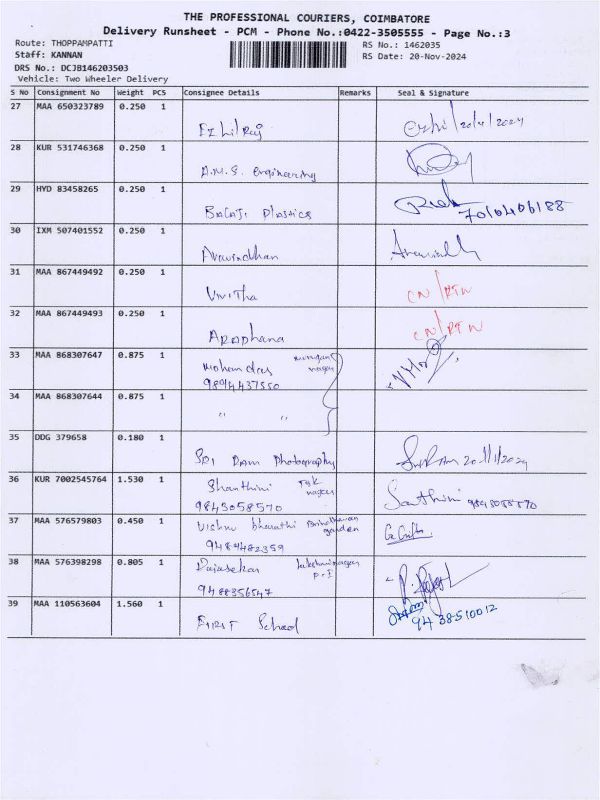 THE PROFESSIONAL COURIERS, COIMBATORE
Delivery Runsheet - PCM - Phone No.:0422-3505555 - Page No.:3
Route: THOPPAMPATTI
RS No.: 1462035
Staff: KANNAN
RS Date: 20-Nov-2024
DRS No.: DCJB146203503
Vehicle: Two Wheeler Delivery
S No Consignment No Weight PCS Consignee Details Remarks Seal & Signature
27 MAA 650323789 0.250 1
Ezhilraj
28 KUR 531746368 0.250 1
A.M.S. Engineering
29 HYD 83458265 0.250 1
Balaji Plastics
30 IXM 507401552 0.250 1
Aravindhan
31 MAA 867449492 0.250 1
CN/RTN
32 MAA 867449493 0.250 1
CN/RTN
33 MAA 868307647 0.875 1
Mohandas murugan nagar
34 MAA 868307644 0.875 1
" "
35 DDG 379658 0.180 1
Sri Ram Photography
36 KUR 7002545764 1.530 1
Shanthini nagar
9843058570
Santhini 9843058570
37 MAA 576579803 0.450 1
Vishnu bharathi garden
9487482359
38 MAA 576398298 0.805 1
Rajasekar
9488356547
39 MAA 110563604 1.560 1
First School